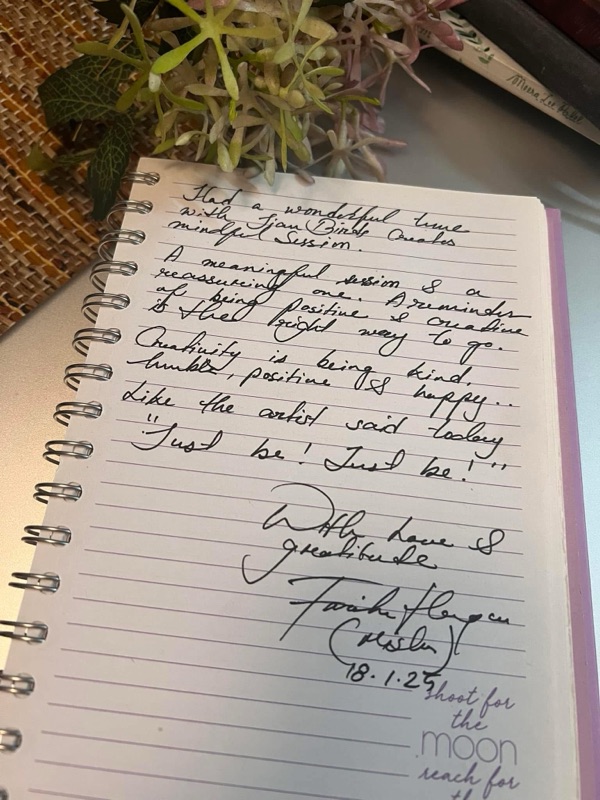 Meera Lee Patel
Had a wonderful time
with Tian Binds Creates
mindful Session.
A meaningful session & a
reassuring one. A reminder
of being positive & creative
is the right way to go.
Creativity is being kind,
humble, positive & happy..
Like the artist said today
"Just be! Just be!"
With love &
gratitude
18.1.25
shoot for
the
moon
reach for